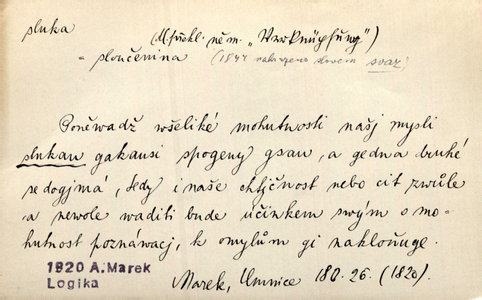 sluka (M překl. něm. „Verknüpfung")
= sloučenina (1844 nahrazeno slovem svaz)
Poněwadž wšeliké mohutnosti našj mysli
slukau gakausi spogeny gsau, a gedna druhé
se dogjmá, tedy i naše chtjčnost nebo cit zwůle
a newole waditi bude účinkem swým o mo-
hutnost poznáwacj, k omylům gi nakloňuge.
1820 A. Marek
Logika
Marek, Umnice 180. 26. (1820).